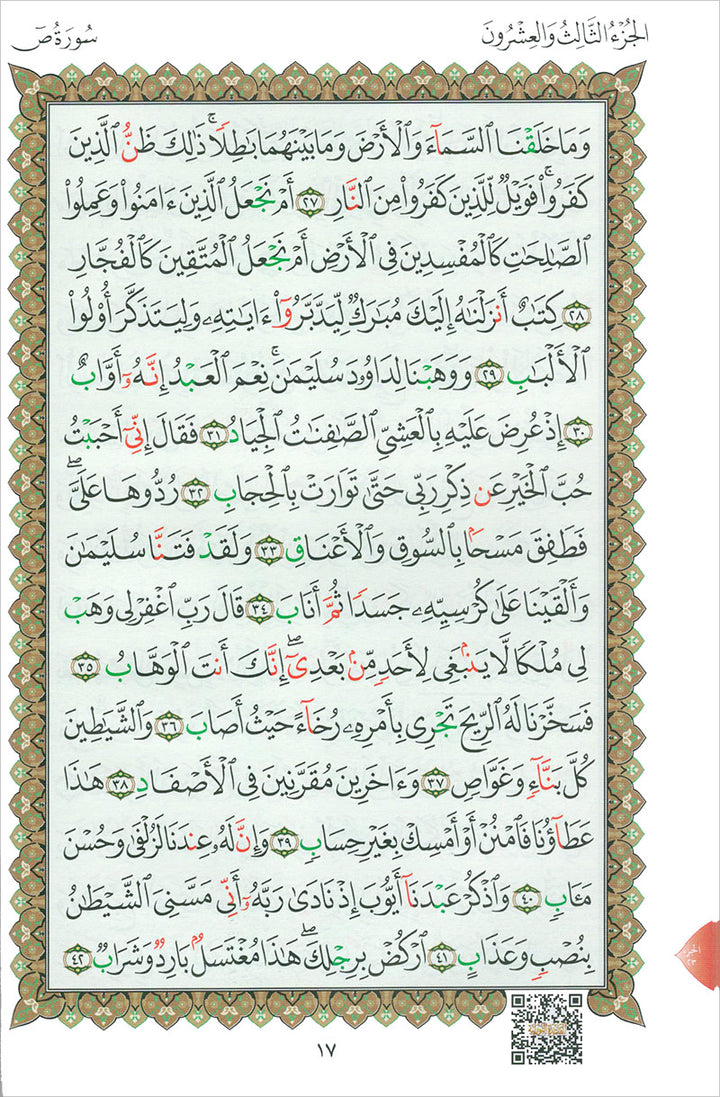 الجُزْءُ الثَّالِثُ وَالْعِشْرُونَ
سُورَةُ صٓ
وَمَا خَلَقْنَا ٱلسَّمَآءَ وَٱلْأَرْضَ وَمَا بَيْنَهُمَا بَٰطِلًۭا ۚ ذَٰلِكَ ظَنُّ ٱلَّذِينَ
كَفَرُوا۟ ۚ فَوَيْلٌۭ لِّلَّذِينَ كَفَرُوا۟ مِنَ ٱلنَّارِ ٢٧ أَمْ نَجْعَلُ ٱلَّذِينَ ءَامَنُوا۟ وَعَمِلُوا۟
ٱلصَّٰلِحَٰتِ كَٱلْمُفْسِدِينَ فِى ٱلْأَرْضِ أَمْ نَجْعَلُ ٱلْمُتَّقِينَ كَٱلْفُجَّارِ
٢٨ كِتَٰبٌ أَنزَلْنَٰهُ إِلَيْكَ مُبَٰرَكٌۭ لِّيَدَّبَّرُوٓا۟ ءَايَٰتِهِۦ وَلِيَتَذَكَّرَ أُو۟لُوا۟
ٱلْأَلْبَٰبِ ٢٩ وَوَهَبْنَا لِدَاوُۥدَ سُلَيْمَٰنَ ۚ نِعْمَ ٱلْعَبْدُ ۖ إِنَّهُۥٓ أَوَّابٌ
٣٠ إِذْ عُرِضَ عَلَيْهِ بِٱلْعَشِىِّ ٱلصَّٰفِنَٰتُ ٱلْجِيَادُ ٣١ فَقَالَ إِنِّىٓ أَحْبَبْتُ
حُبَّ ٱلْخَيْرِ عَن ذِكْرِ رَبِّى حَتَّىٰ تَوَارَتْ بِٱلْحِجَابِ ٣٢ رُدُّوهَا عَلَىَّ ۖ
فَطَفِقَ مَسْحًۢا بِٱلسُّوقِ وَٱلْأَعْنَاقِ ٣٣ وَلَقَدْ فَتَنَّا سُلَيْمَٰنَ
وَأَلْقَيْنَا عَلَىٰ كُرْسِيِّهِۦ جَسَدًۭا ثُمَّ أَنَابَ ٣٤ قَالَ رَبِّ ٱغْفِرْ لِى وَهَبْ
لِى مُلْكًۭا لَّا يَنۢبَغِى لِأَحَدٍۢ مِّنۢ بَعْدِىٓ ۖ إِنَّكَ أَنتَ ٱلْوَهَّابُ ٣٥
فَسَخَّرْنَا لَهُ ٱلرِّيحَ تَجْرِى بِأَمْرِهِۦ رُخَآءً حَيْثُ أَصَابَ ٣٦ وَٱلشَّيَٰطِينَ
كُلَّ بَنَّآءٍۢ وَغَوَّاصٍۢ ٣٧ وَءَاخَرِينَ مُقَرَّنِينَ فِى ٱلْأَصْفَادِ ٣٨ هَٰذَا
عَطَآؤُنَا فَٱمْنُنْ أَوْ أَمْسِكْ بِغَيْرِ حِسَابٍۢ ٣٩ وَإِنَّ لَهُۥ عِندَنَا لَزُلْفَىٰ وَحُسْنَ
مَـَٔابٍۢ ٤٠ وَٱذْكُرْ عَبْدَنَآ أَيُّوبَ إِذْ نَادَىٰ رَبَّهُۥٓ أَنِّى مَسَّنِىَ ٱلشَّيْطَٰنُ
بِنُصْبٍۢ وَعَذَابٍ ٤١ ٱرْكُضْ بِرِجْلِكَ ۖ هَٰذَا مُغْتَسَلٌۢ بَارِدٌۭ وَشَرَابٌۭ ٤٢
الجزء
٢٣
١٧